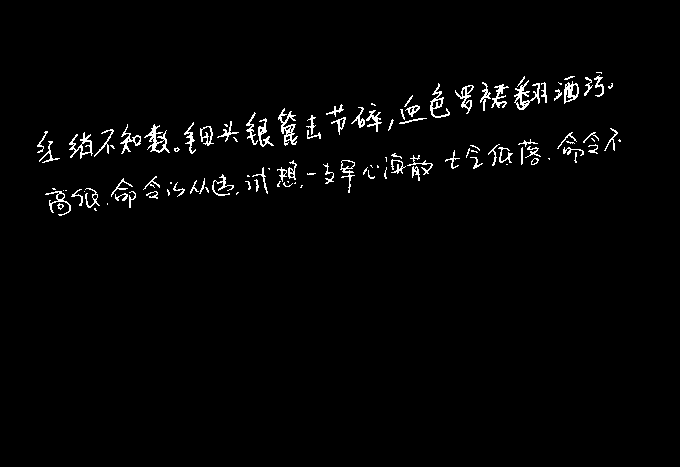 红绡不知数。钿头银篦击节碎,血色罗裙翻酒污。
高低.命令从违.试想.一支军心涣散 士气低落.命令不